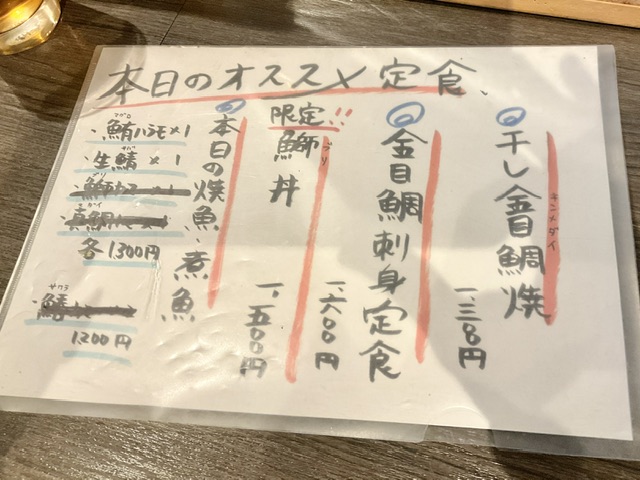 本日のオススメ定食
干し金目鯛焼
キンメダイ
一、三〇〇円
金目鯛刺身定食
一、六〇〇円
限定!!
鰤丼
ブリ
一、五〇〇円
本日の焼魚・煮魚
マグロ
・鮪ハラモ×1
サバ
・生鯖×1
ブリ
・鰤カマ×1
ダイ
・真鯛
各1300円
サワラ
・鰆
1200円